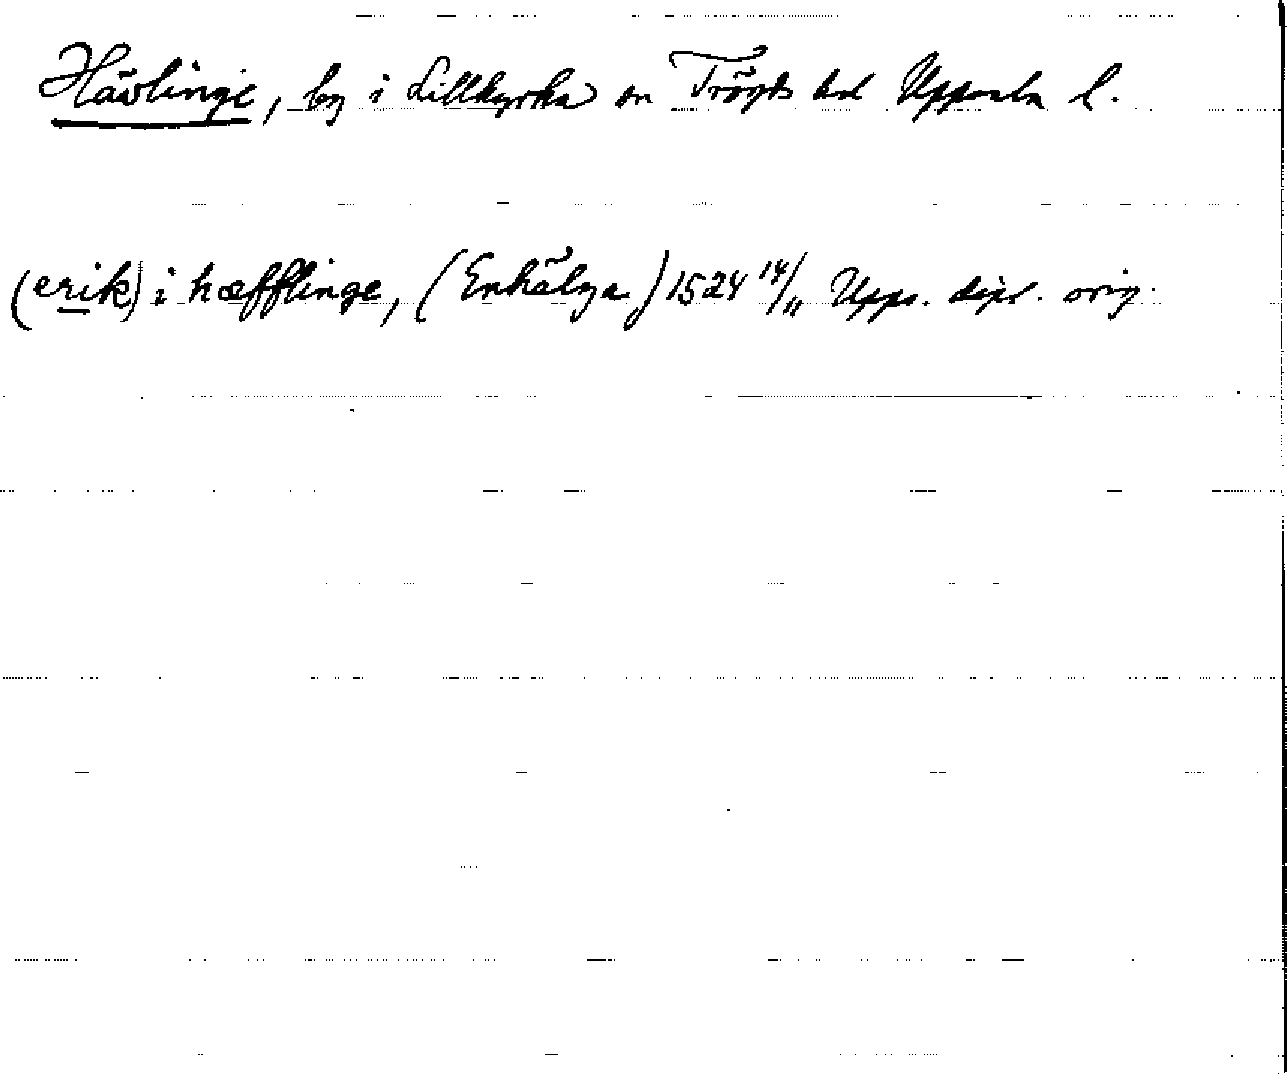 Hävlinge, by i Lillkyrka sn Trögds hd Uppsala l.
(erik) i hæfflinge, (Enhälga) 1524 14/11 Upps. dipl. orig.